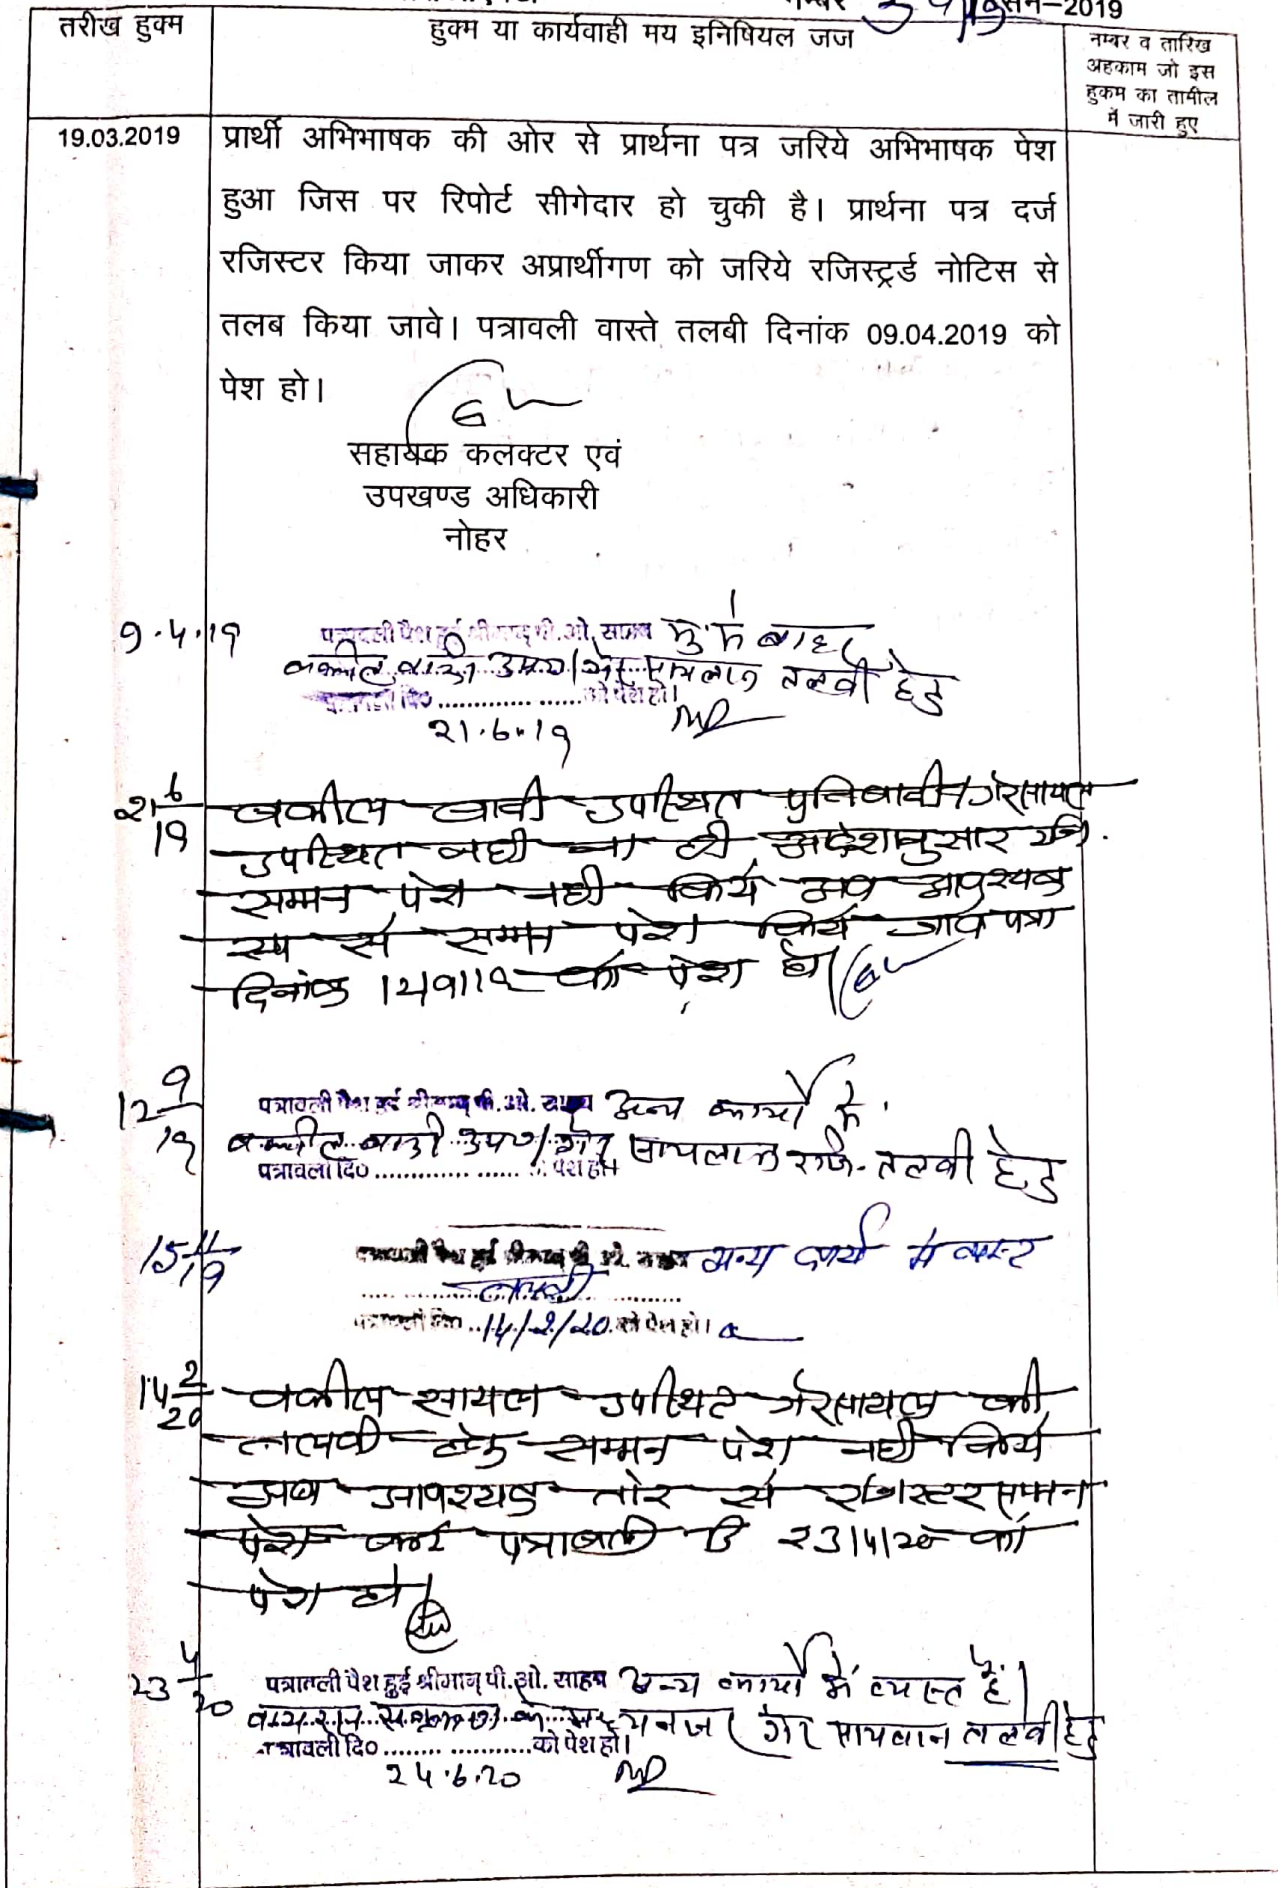 नम्बर सन–2019
तरीख हुक्म
हुक्म या कार्यवाही मय इनिषियल जज
नम्बर व तारिख
अहकाम जो इस
हुकम का तामील
में जारी हुए
19.03.2019
प्रार्थी अभिभाषक की ओर से प्रार्थना पत्र जरिये अभिभाषक पेश
हुआ जिस पर रिपोर्ट सीगेदार हो चुकी है। प्रार्थना पत्र दर्ज
रजिस्टर किया जाकर अप्रार्थीगण को जरिये रजिस्ट्रर्ड नोटिस से
तलब किया जावे। पत्रावली वास्ते तलबी दिनांक 09.04.2019 को
पेश हो।
सहायक कलक्टर एवं
उपखण्ड अधिकारी
नोहर
9.4.19
पत्रावली पेश हुई श्रीमान् पी.ओ. साहब मु. मे बाहर
वकील वादी उप0/गैर सायलान तलबी हेतु
पत्रावली दि० .................... को पेश हो।
21.6.19
21 6/19
वकील वादी उपस्थित प्रतिवादी/गैरसायल
उपस्थित नही आदेशानुसार रजि.
सम्मन पेश नही किये अब आवश्यक
रूप से सम्मन पेश किये जावे पत्रा
दिनांक 12/9/19 को पेश हो।
12 9/19
पत्रावली पेश हुई श्रीमान् पी.ओ. साहब अन्य कार्यो मे
वकील वादी उप0/गैर सायलान रजि. तलबी हेतु
पत्रावली दि० .................... पेश हो।
15 11/19
पत्रावली पेश हुई श्रीमान् पी.ओ. साहब अन्य कार्य मे व्यस्त
तलबी
पत्रावली दि० 14/2/20 को पेश हो।
14 2/20
वकील सायल उपस्थित गैरसायल की
तलबी हेतु सम्मन पेश नही किये
अब आवश्यक तोर से रजिस्टर सम्मन
पेश करे पत्रावली दि 23/4/20 को
पेश हो।
23 4/20
पत्रावली पेश हुई श्रीमान् पी.ओ. साहब अन्य कार्यो में व्यस्त है।
के मध्यनजर गैर सायलान तलबी हेतु
पत्रावली दि० .................... को पेश हो।
24.6.20